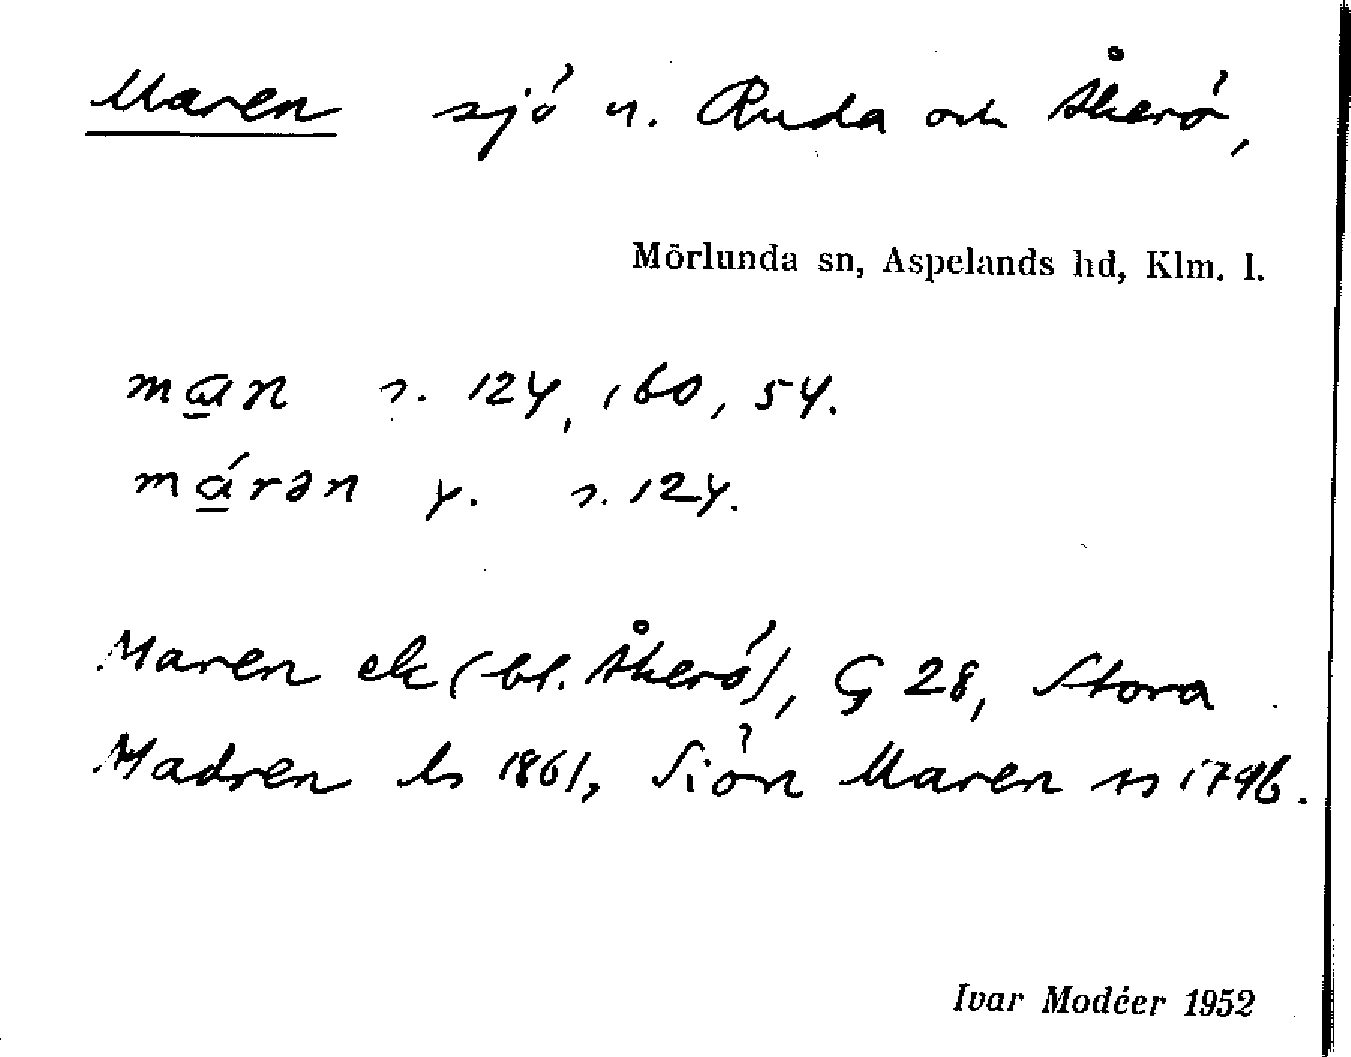 Maren sjö n. Ruda och Åkerö,
Mörlunda sn, Aspelands hd, Klm. l.
ma̲n s. 124, 160, 54.
má̲rən y. s. 124.
Maren ek (bl. Åkerö), G 28, Stora
Madren ls 1861, Siön Maren ss 1796.
Ivar Modéer 1952